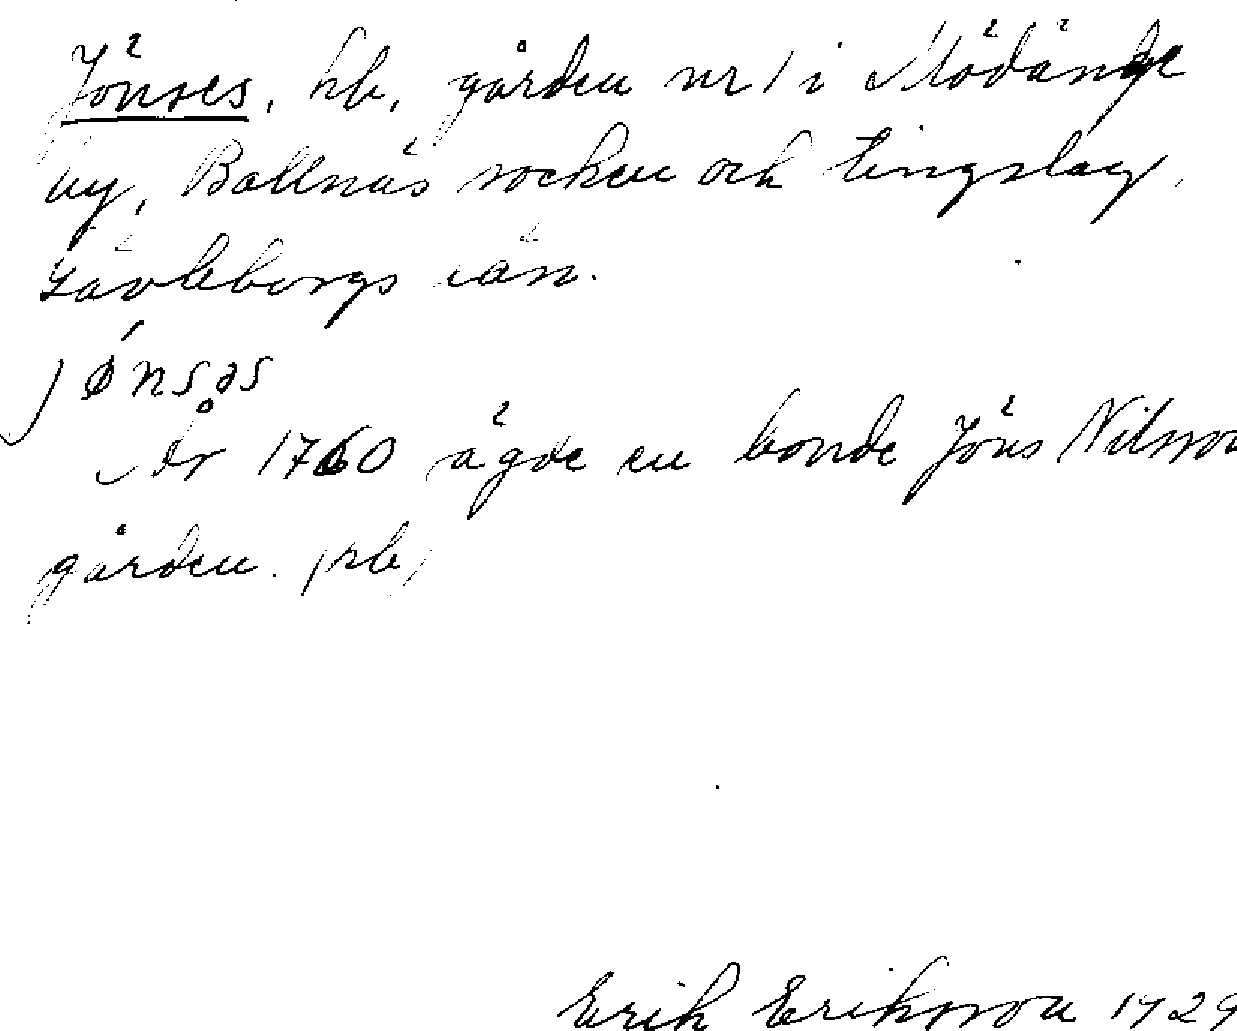 Jönses, hb, gården nr 1 i Mödänge
by, Bollnäs socken och tingslag,
Gävleborgs län.
jǿnsəs
År 1760 ägde en bonde Jöns Nilsson
gården. (rb)
Erik Eriksson 1929